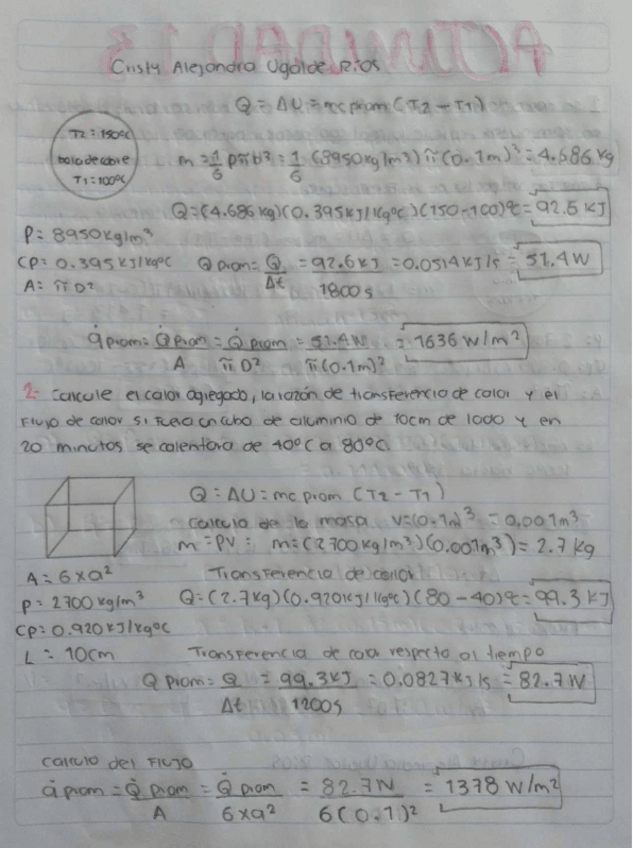 ACTIVIDAD 13
Cristy Alejandra Ugalde Ríos
Q = ΔU = mc prom (T2 - T1)
T2 = 150°C
bola de cobre
T1 = 100°C
m = 1/6 ρπD³ = 1/6 (8950kg/m³) π (0.1m)³ = 4.686 kg
Q = (4.686 kg)(0.395KJ/kg°C)(150-100)°C = 92.5 KJ
ρ = 8950kg/m³
CP = 0.395 KJ/kg°C Q prom = Q/Δt = 92.6KJ/1800s = 0.0514KJ/s = 51.4 W
A = πD²
q̇ prom = Q̇ prom/A = Q̇ prom/πD² = 51.4W/π(0.1m)² = 1636 W/m²
2- Calcule el calor agregado, la razón de transferencia de calor y el
flujo de calor si fuera un cubo de aluminio de 10cm de lado y en
20 minutos se calentara de 40°C a 80°C.
Q = ΔU = mc prom (T2 - T1)
calculo de la masa v=(0.1m)³ = 0.001m³
m = ρV = m=(2700kg/m³)(0.001m³) = 2.7 kg
A = 6xa² Transferencia de calor
ρ = 2700 kg/m³ Q = (2.7kg)(0.920KJ/kg°C)(80-40)°C = 99.3 KJ
CP = 0.920 KJ/kg°C
L = 10cm Transferencia de calor respecto al tiempo
Q prom = Q/Δt = 99.3KJ/1200s = 0.0827KJ/s = 82.7W
calculo del flujo
q̇ prom = Q̇ prom/A = Q̇ prom/6xa² = 82.7W/6(0.1)² = 1378 W/m²